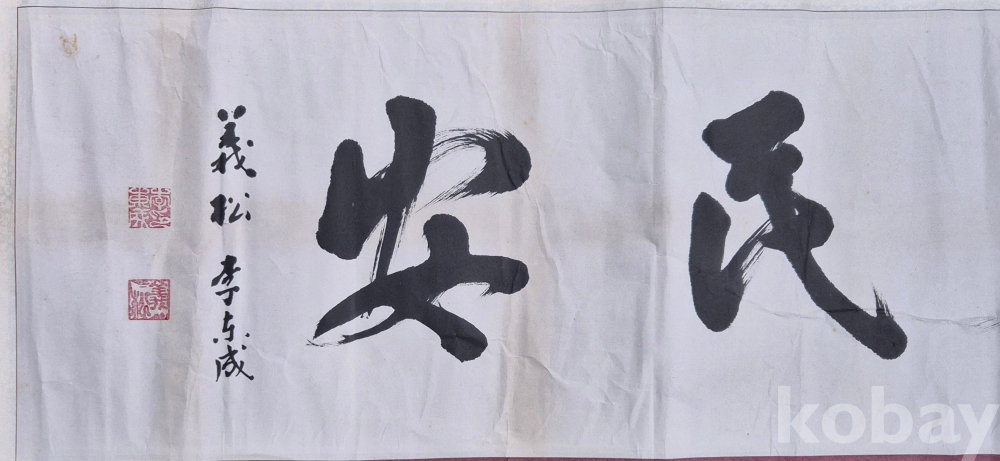 民安
義松 李东成
kobay